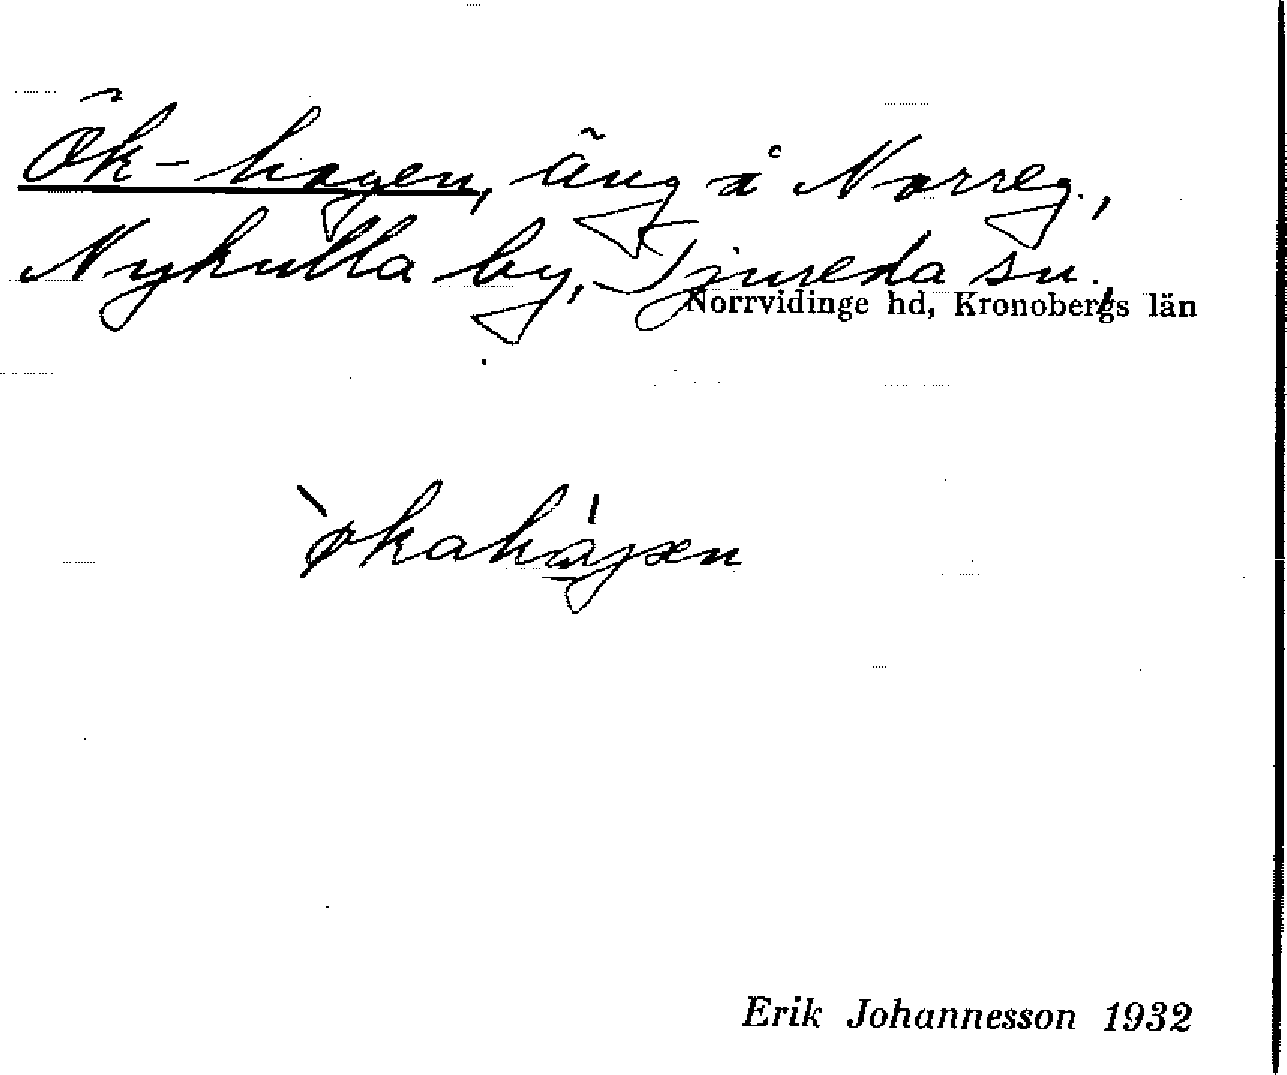 Ök-hagen, äng å Norreg.,
Nykulla by, Tjureda sn.,
Norrvidinge hd, Kronobergs län
`økahá̱gæn
Erik Johannesson 1932